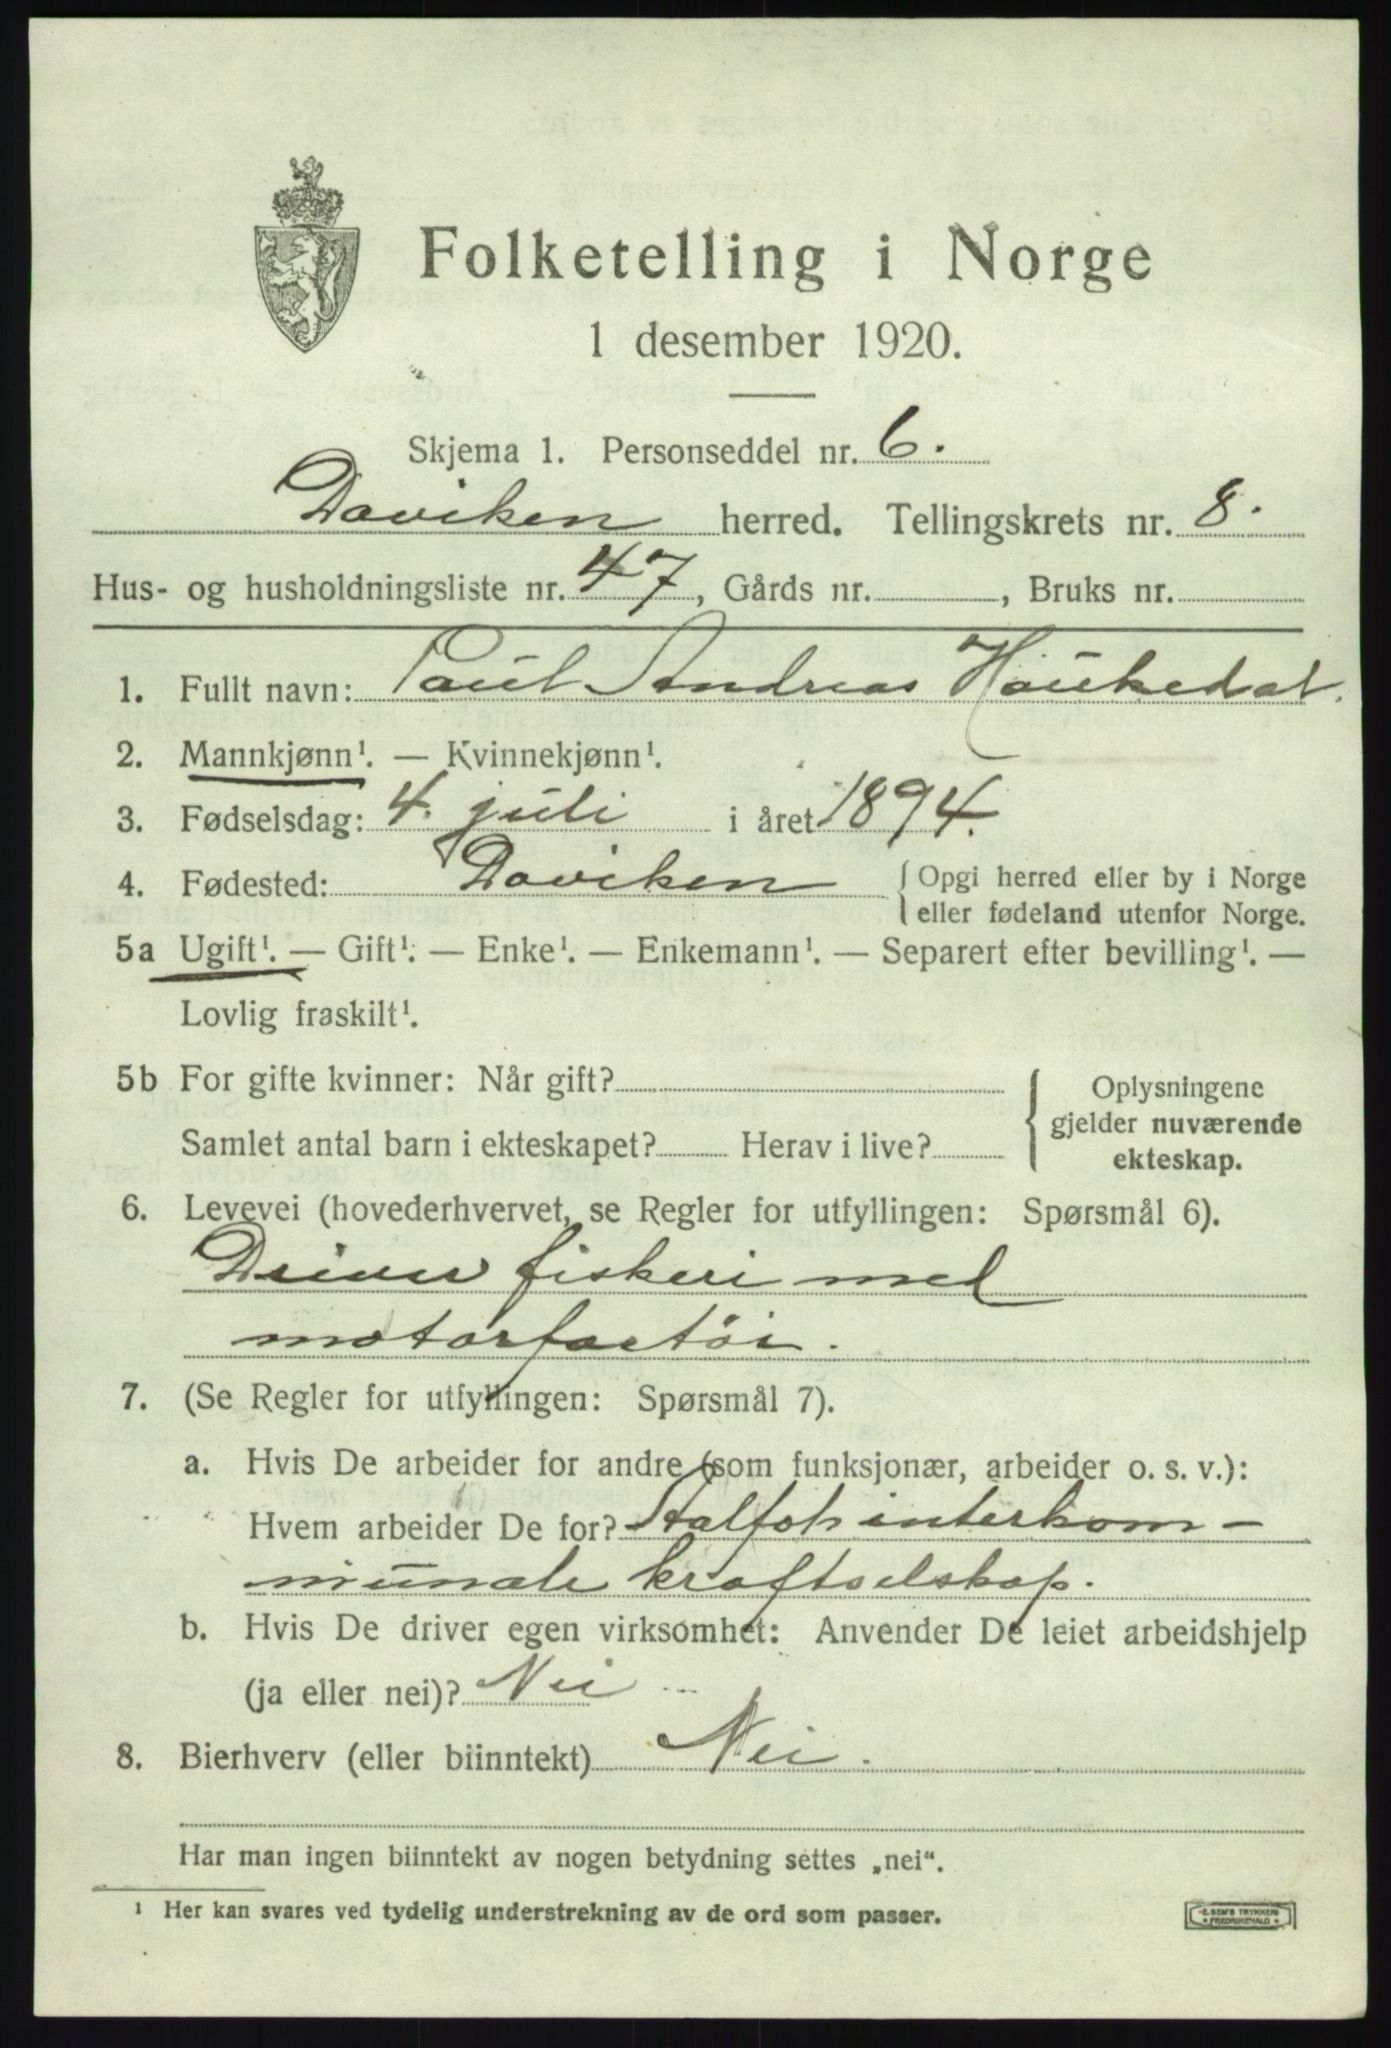 Folketelling i Norge
1 desember 1920.
Skjema 1. Personseddel nr. 6.
Daviken herred. Tellingskrets nr. 8.
Hus- og husholdningsliste nr. 47, Gårds nr. , Bruks nr.
1. Fullt navn: Paul Andreas Haukedal.
2. Mannkjønn¹. — Kvinnekjønn¹.
3. Fødselsdag: 4. juli i året 1894.
4. Fødested: Daviken { Opgi herred eller by i Norge
eller fødeland utenfor Norge.
5a Ugift¹. — Gift¹. — Enke¹. — Enkemann¹. — Separert efter bevilling¹. —
Lovlig fraskilt¹.
5b For gifte kvinner: Når gift?
Samlet antal barn i ekteskapet? Herav i live?
Oplysningene
gjelder nuværende
ekteskap.
6. Levevei (hovederhvervet, se Regler for utfyllingen: Spørsmål 6).
Driver fiskeri med
motorfartöi.
7. (Se Regler for utfyllingen: Spørsmål 7).
a. Hvis De arbeider for andre (som funksjonær, arbeider o. s. v.):
Hvem arbeider De for? interkom-
munale kraftselskap.
b. Hvis De driver egen virksomhet: Anvender De leiet arbeidshjelp
(ja eller nei)? Nei
8. Bierhverv (eller biinntekt) Nei.
Har man ingen biinntekt av nogen betydning settes „nei“.
¹ Her kan svares ved tydelig understrekning av de ord som passer.
E. SEM'S TRYKKERI
• FREDRIKSHALD •